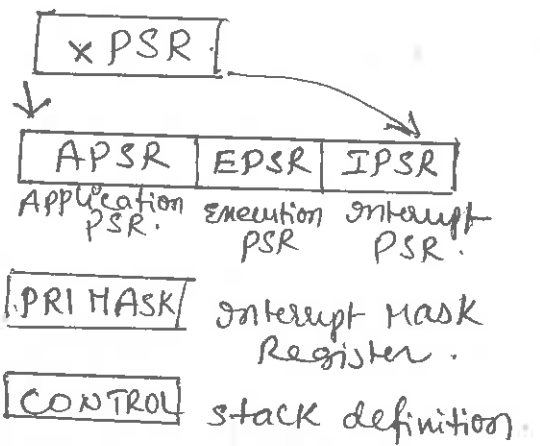 xPSR
APSR EPSR IPSR
Application Execution Interrupt
PSR. PSR PSR.
PRIMASK Interrupt Mask
Register.
CONTROL stack definition.